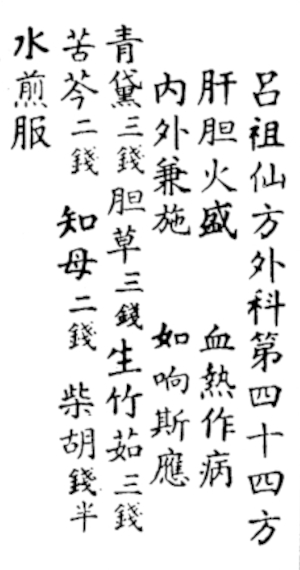 呂祖仙方外科第四十四方
肝胆火盛 血熱作病
內外兼施 如响斯應
青黛三錢胆草三錢生竹茹三錢
苦芩二錢 知母二錢 柴胡錢半
水煎服